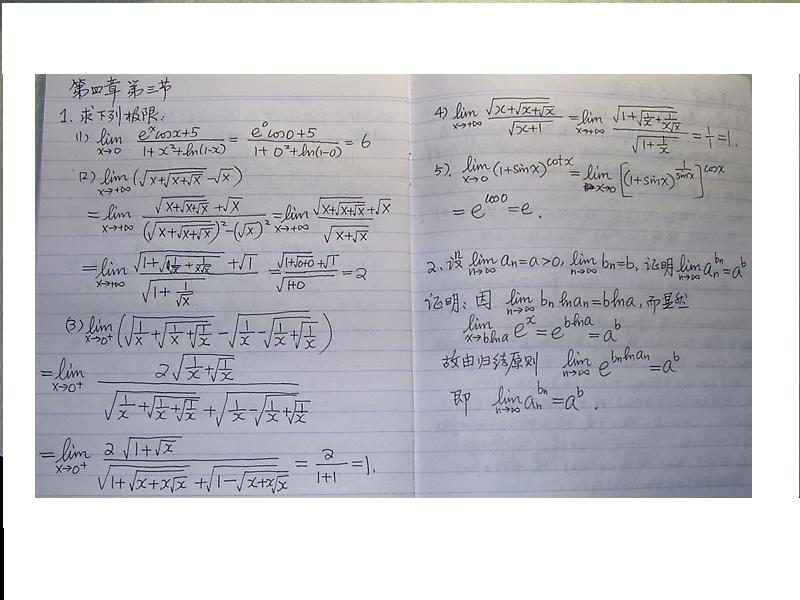 第四章 第三节
1. 求下列极限:
(1) lim_{x→0} (e^x cosx+5)/(1+x²+ln(1-x)) = (e⁰cos0+5)/(1+0²+ln(1-0)) = 6
(2) lim_{x→+∞} (√(x+√(x+√x)) -√x)
= lim_{x→+∞} (√(x+√(x+√x)) +√x)/((√(x+√(x+√x)))²-(√x)²) = lim_{x→+∞} (√(x+√(x+√x)) +√x)/√(x+√x)
= lim_{x→+∞} (√(1+√(1/x+1/(x√x))) +√1)/√(1+1/√x) = (√(1+√(0+0)) +√1)/√(1+0) = 2
(3) lim_{x→0⁺} (√(1/x+√(1/x+√(1/x))) - √(1/x-√(1/x+√(1/x))))
= lim_{x→0⁺} 2√(1/x+√(1/x))/(√(1/x+√(1/x+√(1/x))) + √(1/x-√(1/x+√(1/x))))
= lim_{x→0⁺} 2√(1+√x)/(√(1+√(x+x√x)) +√(1-√(x+x√x))) = 2/(1+1) = 1.
4) lim_{x→+∞} √(x+√(x+√x))/√(x+1) = lim_{x→+∞} √(1+√(1/x+1/(x√x)))/√(1+1/x) = 1/1 = 1.
5). lim_{x→0} (1+sinx)^{cotx} = lim_{x→0} [(1+sinx)^{1/sinx}]^{cosx}
= e^{cos0} = e.
2. 设 lim_{n→∞} aₙ=a>0, lim_{n→∞} bₙ=b, 证明 lim_{n→∞} aₙ^{bₙ}=a^b
证明: 因 lim_{n→∞} bₙ lnaₙ=blna, 而显然
lim_{x→blna} e^x = e^{blna} = a^b
故由归结原则 lim_{n→∞} e^{bₙlnaₙ} = a^b
即 lim_{n→∞} aₙ^{bₙ} = a^b .